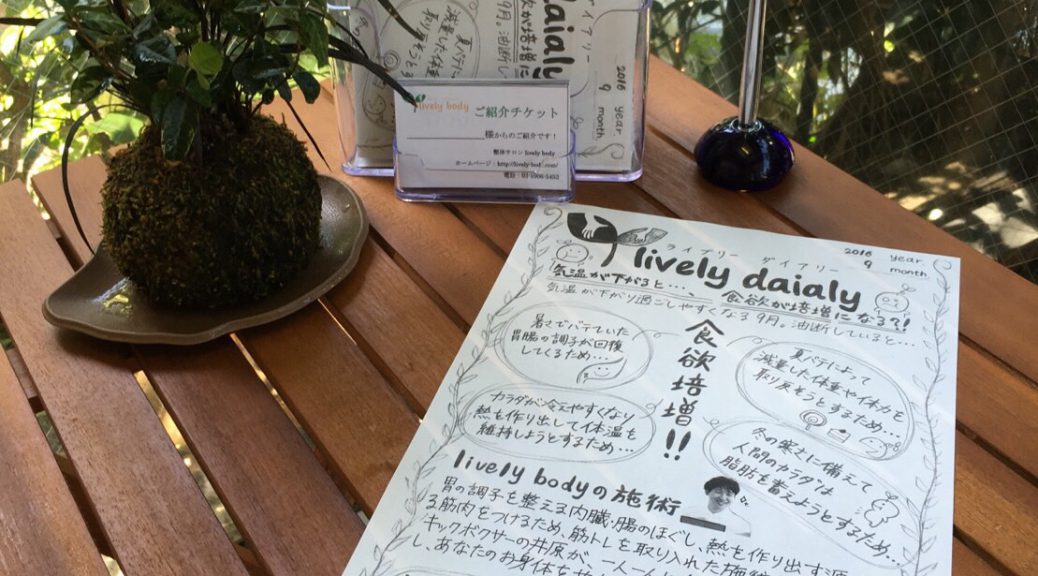 ダイアリー
daialy
2016 year
9 month
夏バテによって
減量した体重や
取り戻そうと
lively body
ご紹介チケット
様からのご紹介です!
整体サロン lively body
ホームページ:http://lively-body.com/
ライブリー ダイアリー
2016 year
9 month
lively daialy
気温が下がると…、食欲が倍増になる?!
気温が下がり過ごしやすくなる9月。油断していると…
食欲倍増!!
暑さでバテていた
胃腸の調子が回復
してくるため…
夏バテによって
減量した体重や体力を
取り戻そうとするため…
カラダが冷えやすくなり
熱を作り出して体温を
維持しようとするため…
冬の寒さに備えて
人間のカラダは
脂肪を蓄えようとするため…
lively bodyの施術
胃の調子を整える内臓・腸のほぐし、熱を作り出す源
る筋肉をつけるため、筋トレを取り入れた施術
キックボクサーの井原が、一人一人
し、あなたのお身体を